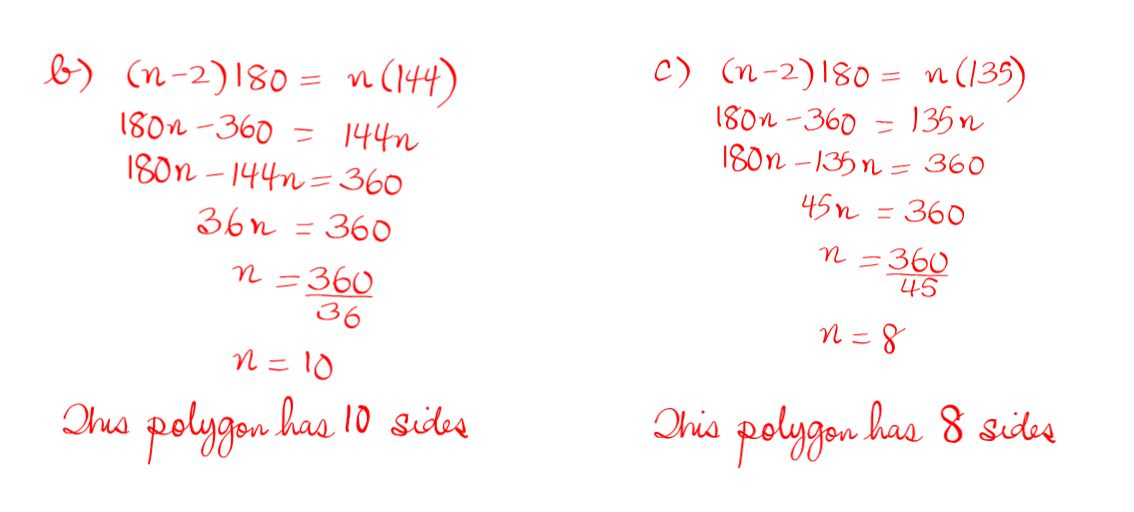 b) (n-2)180 = n(144)
180n-360 = 144n
180n-144n=360
36n = 360
n = 360/36
n = 10
This polygon has 10 sides
c) (n-2)180 = n(135)
180n-360 = 135n
180n-135n = 360
45n = 360
n = 360/45
n = 8
This polygon has 8 sides